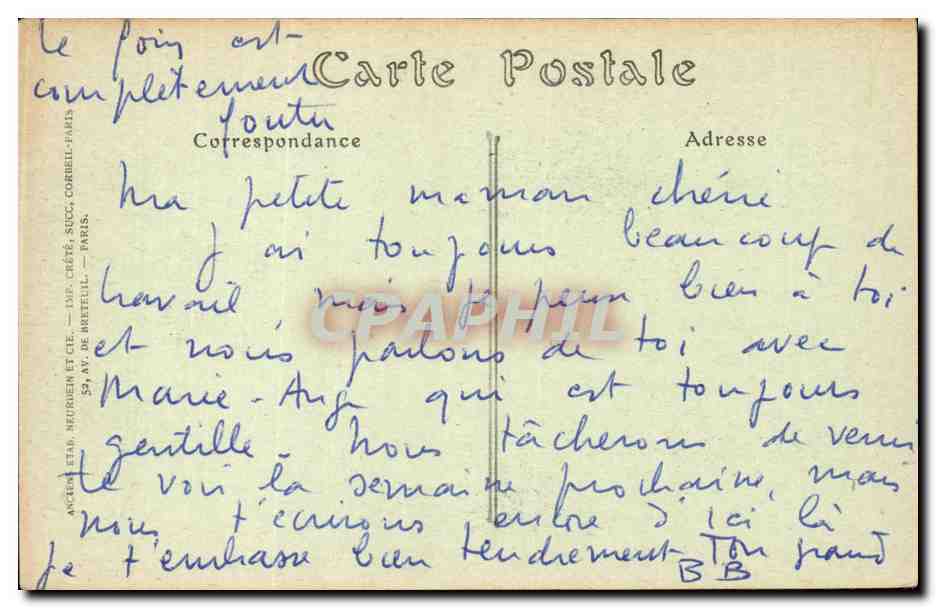 Le foin est
complètement
foutu
Carte Postale
Correspondance
Adresse
Ma petite maman chérie
J'ai toujours beaucoup de
travail mais je pense bien à toi
et nous parlons de toi avec
Marie-Ange qui est toujours
gentille. Nous tâcherons de venir
te voir la semaine prochaine, mais
nous t'écrirons encore d'ici là
Je t'embrasse bien tendrement Ton grand
BB
ANCIENS ETAB. NEURDEIN ET CIE. — IMP. CRÉTÉ, SUCC, CORBEIL-PARIS
52, AV. DE BRETEUIL. — PARIS.
CPAPHIL